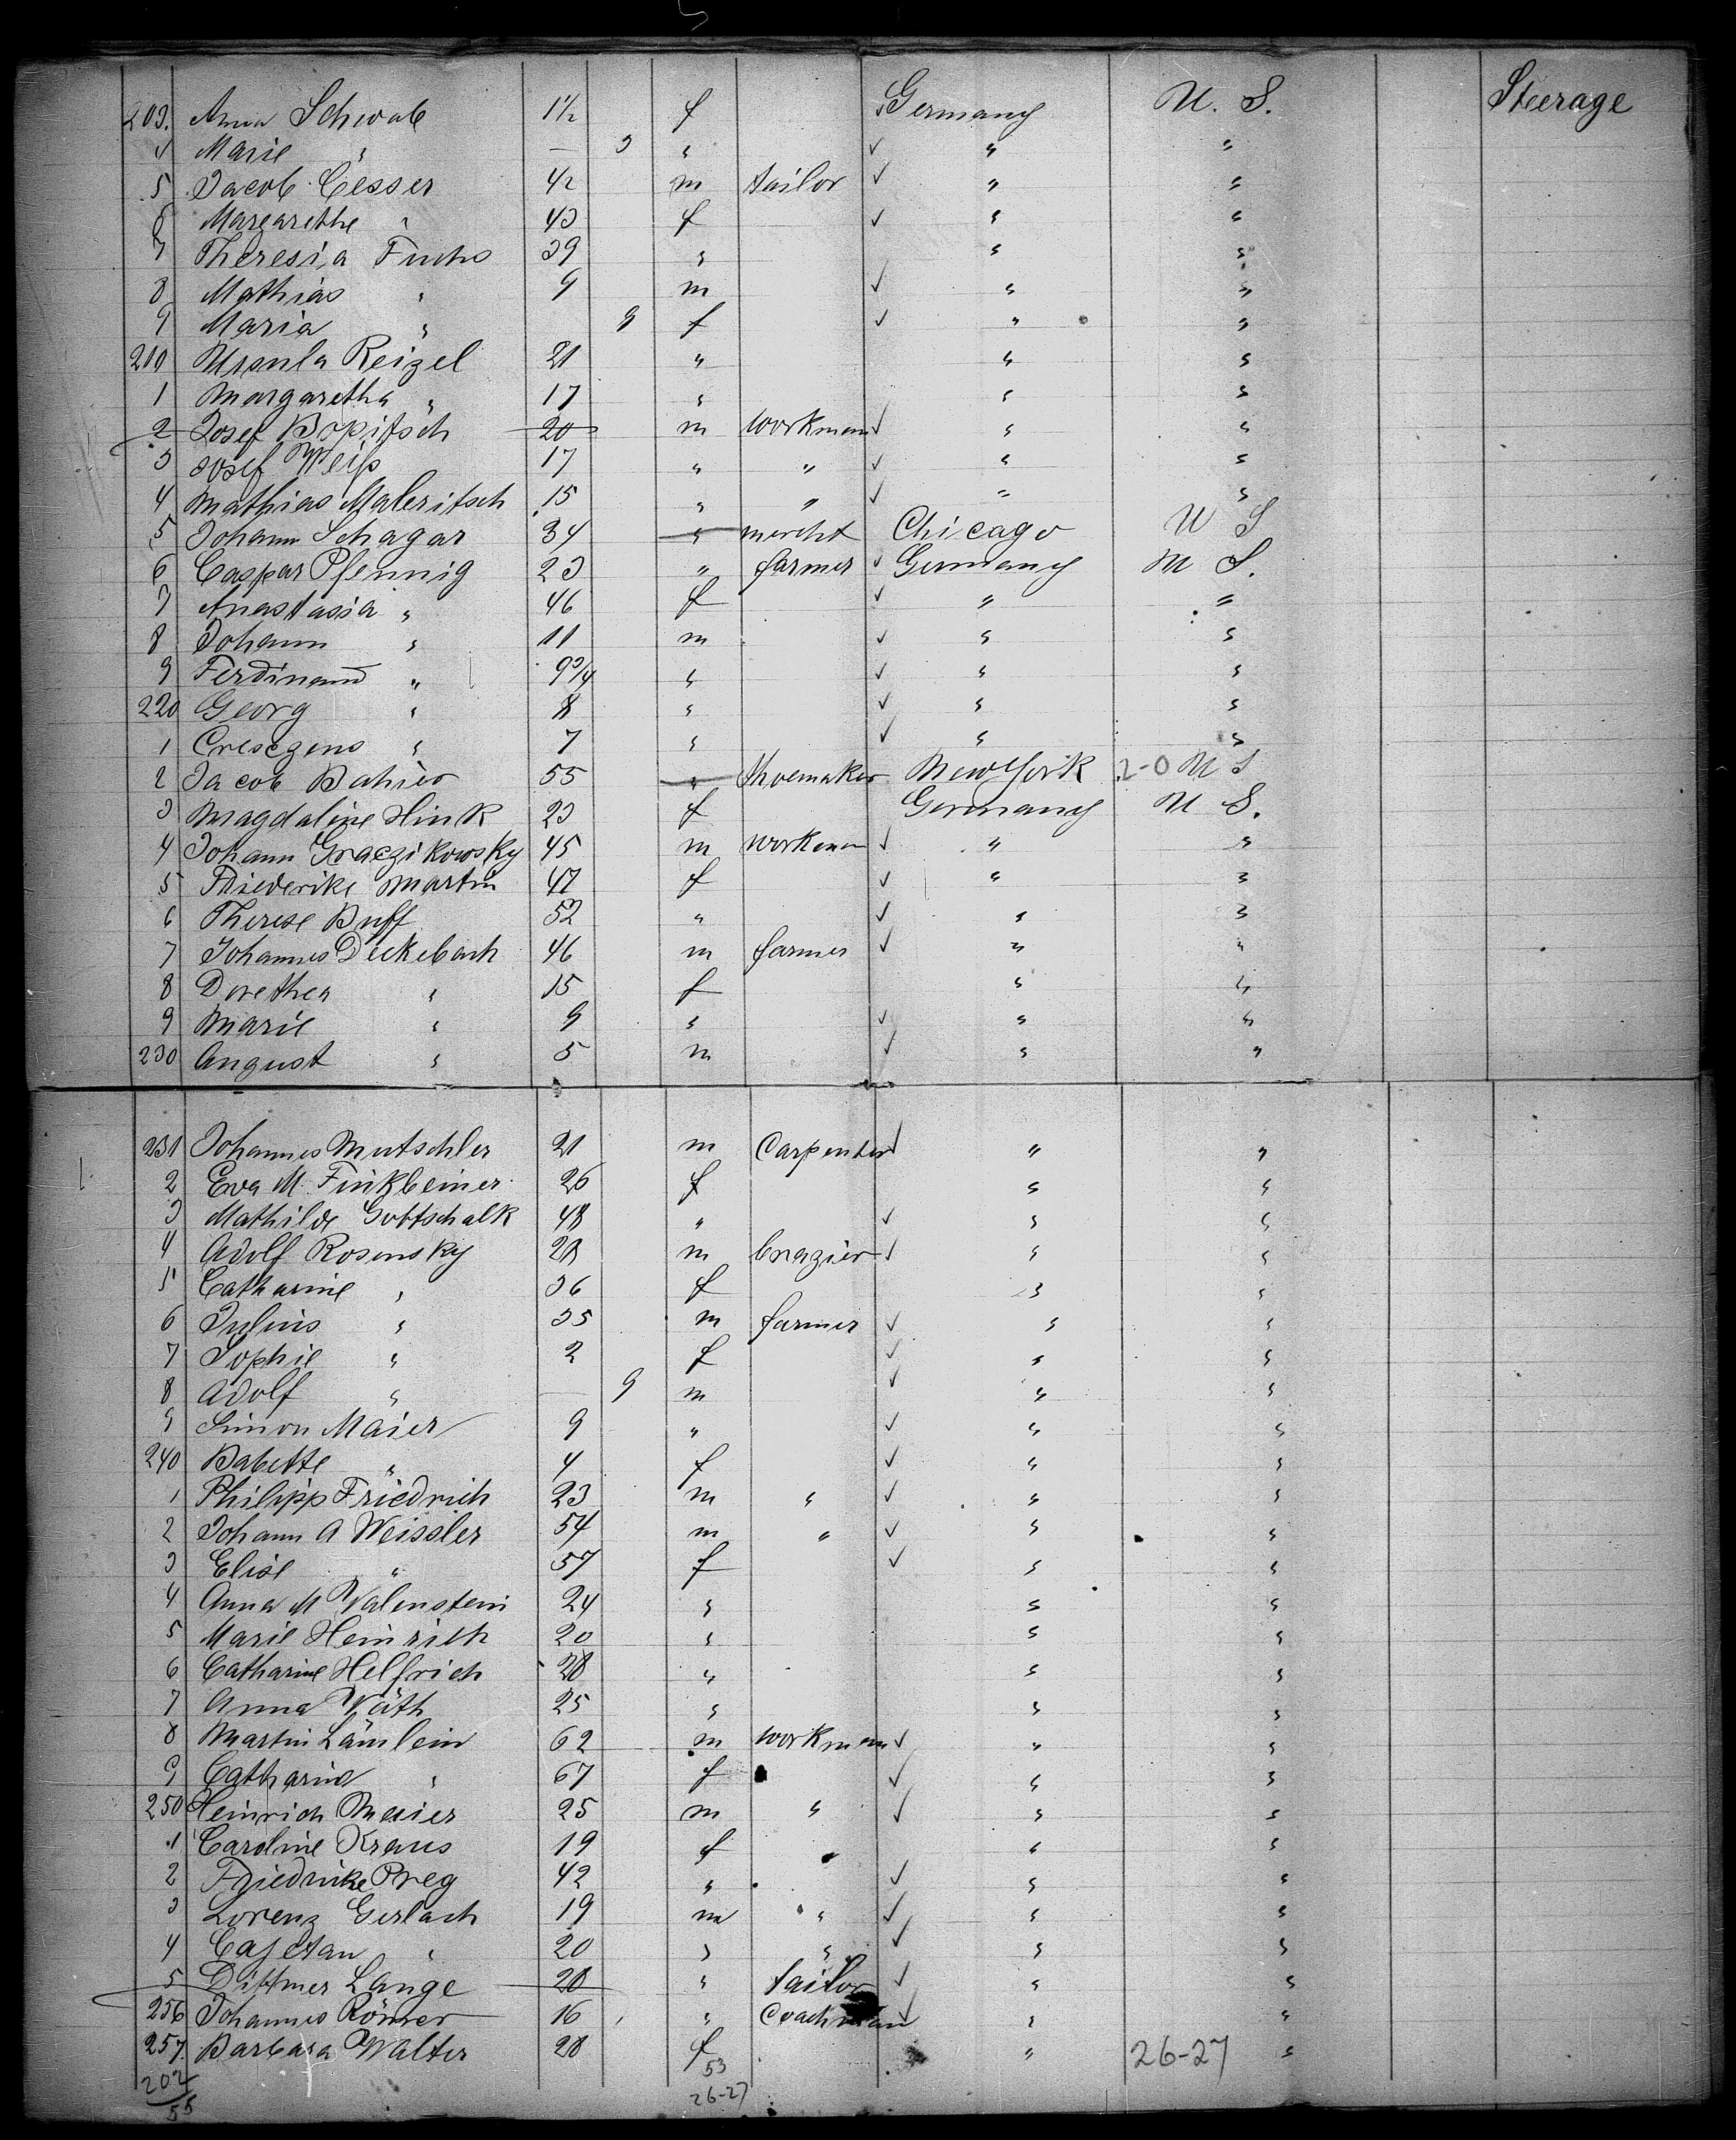 203. Anna Schwab 1½ f Germany U. S. Steerage
4 Marie " — 3 " ✓ " "
5 Jacob Cesser 42 m tailor ✓ " "
6 Margarethe " 43 f ✓ " "
7 Theresia Fuchs 39 " " "
8 Mathias " 9 m ✓ " "
9 Maria " 9 f ✓ " "
210 Ursula Reizel 21 " " "
1 Margaretha " 17 " " "
2 Josef Bopitsch 20 m workman ✓ " "
3 Josef Weiß 17 " " ✓ " "
4 Mathias Maleritsch 15 " " ✓ " "
5 Johann Schagar 34 " mercht Chicago U S
6 Caspar Pfennig 23 " farmer ✓ Germany U S.
7 Anastasia " 46 f ✓ " "
8 Johann " 11 m ✓ " "
9 Ferdinand " 9¾ " ✓ " "
220 Georg " 8 " ✓ " "
1 Cresczens " 7 " ✓ " "
2 Jacob Bahier 55 " shoemaker New York 2-0 U S
3 Magdaline Hink 23 f Germany U S.
4 Johann Graczikowsky 45 m workman ✓ " "
5 Friederike Martin 47 f ✓ " "
6 Therese Buff 52 " ✓ " "
7 Johannes Deckebach 46 m farmer ✓ " "
8 Dorethea " 15 f " "
9 Marie " 9 " ✓ " "
230 August " 5 m ✓ " "
231 Johannes Mutschler 21 m Carpenter ✓ " "
2 Eva M. Finkbeiner 26 f " "
3 Mathilde Gottschalk 48 " ✓ " "
4 Adolf Rosensky 28 m brazier ✓ " "
5 Catharine " 36 f " "
6 Julius " 35 m farmer ✓ " "
7 Sophie " 2 f ✓ " "
8 Adolf " — 9 m ✓ " "
9 Simon Maier 9 " ✓ " "
240 Babette " 4 f ✓ " "
1 Philipp Friedrich 23 m " ✓ " "
2 Johann A Weissler 54 m " ✓ " "
3 Elise " 57 f ✓ " "
4 Anna M Walenstein 24 " " "
5 Marie Heinrich 20 " " "
6 Catharine Helfrich 28 " " "
7 Anna Väth 25 " " "
8 Martin Lämlein 62 m workman ✓ " "
9 Catharine " 67 f ✓ " "
250 Heinrich Maier 25 m " ✓ " "
1 Caroline Kraus 19 f " "
2 Friedrike Preg 42 " ✓ " "
3 Lorenz Gerlach 19 m " ✓ " "
4 Cajetan " 20 " " ✓ " "
5 Dittmer Lange 28 " tailor ✓ " "
256 Johannes Römer 16 " Coachman ✓ " "
257. Barbara Walter 28 f " 26-27 "
202 53
55 26-27